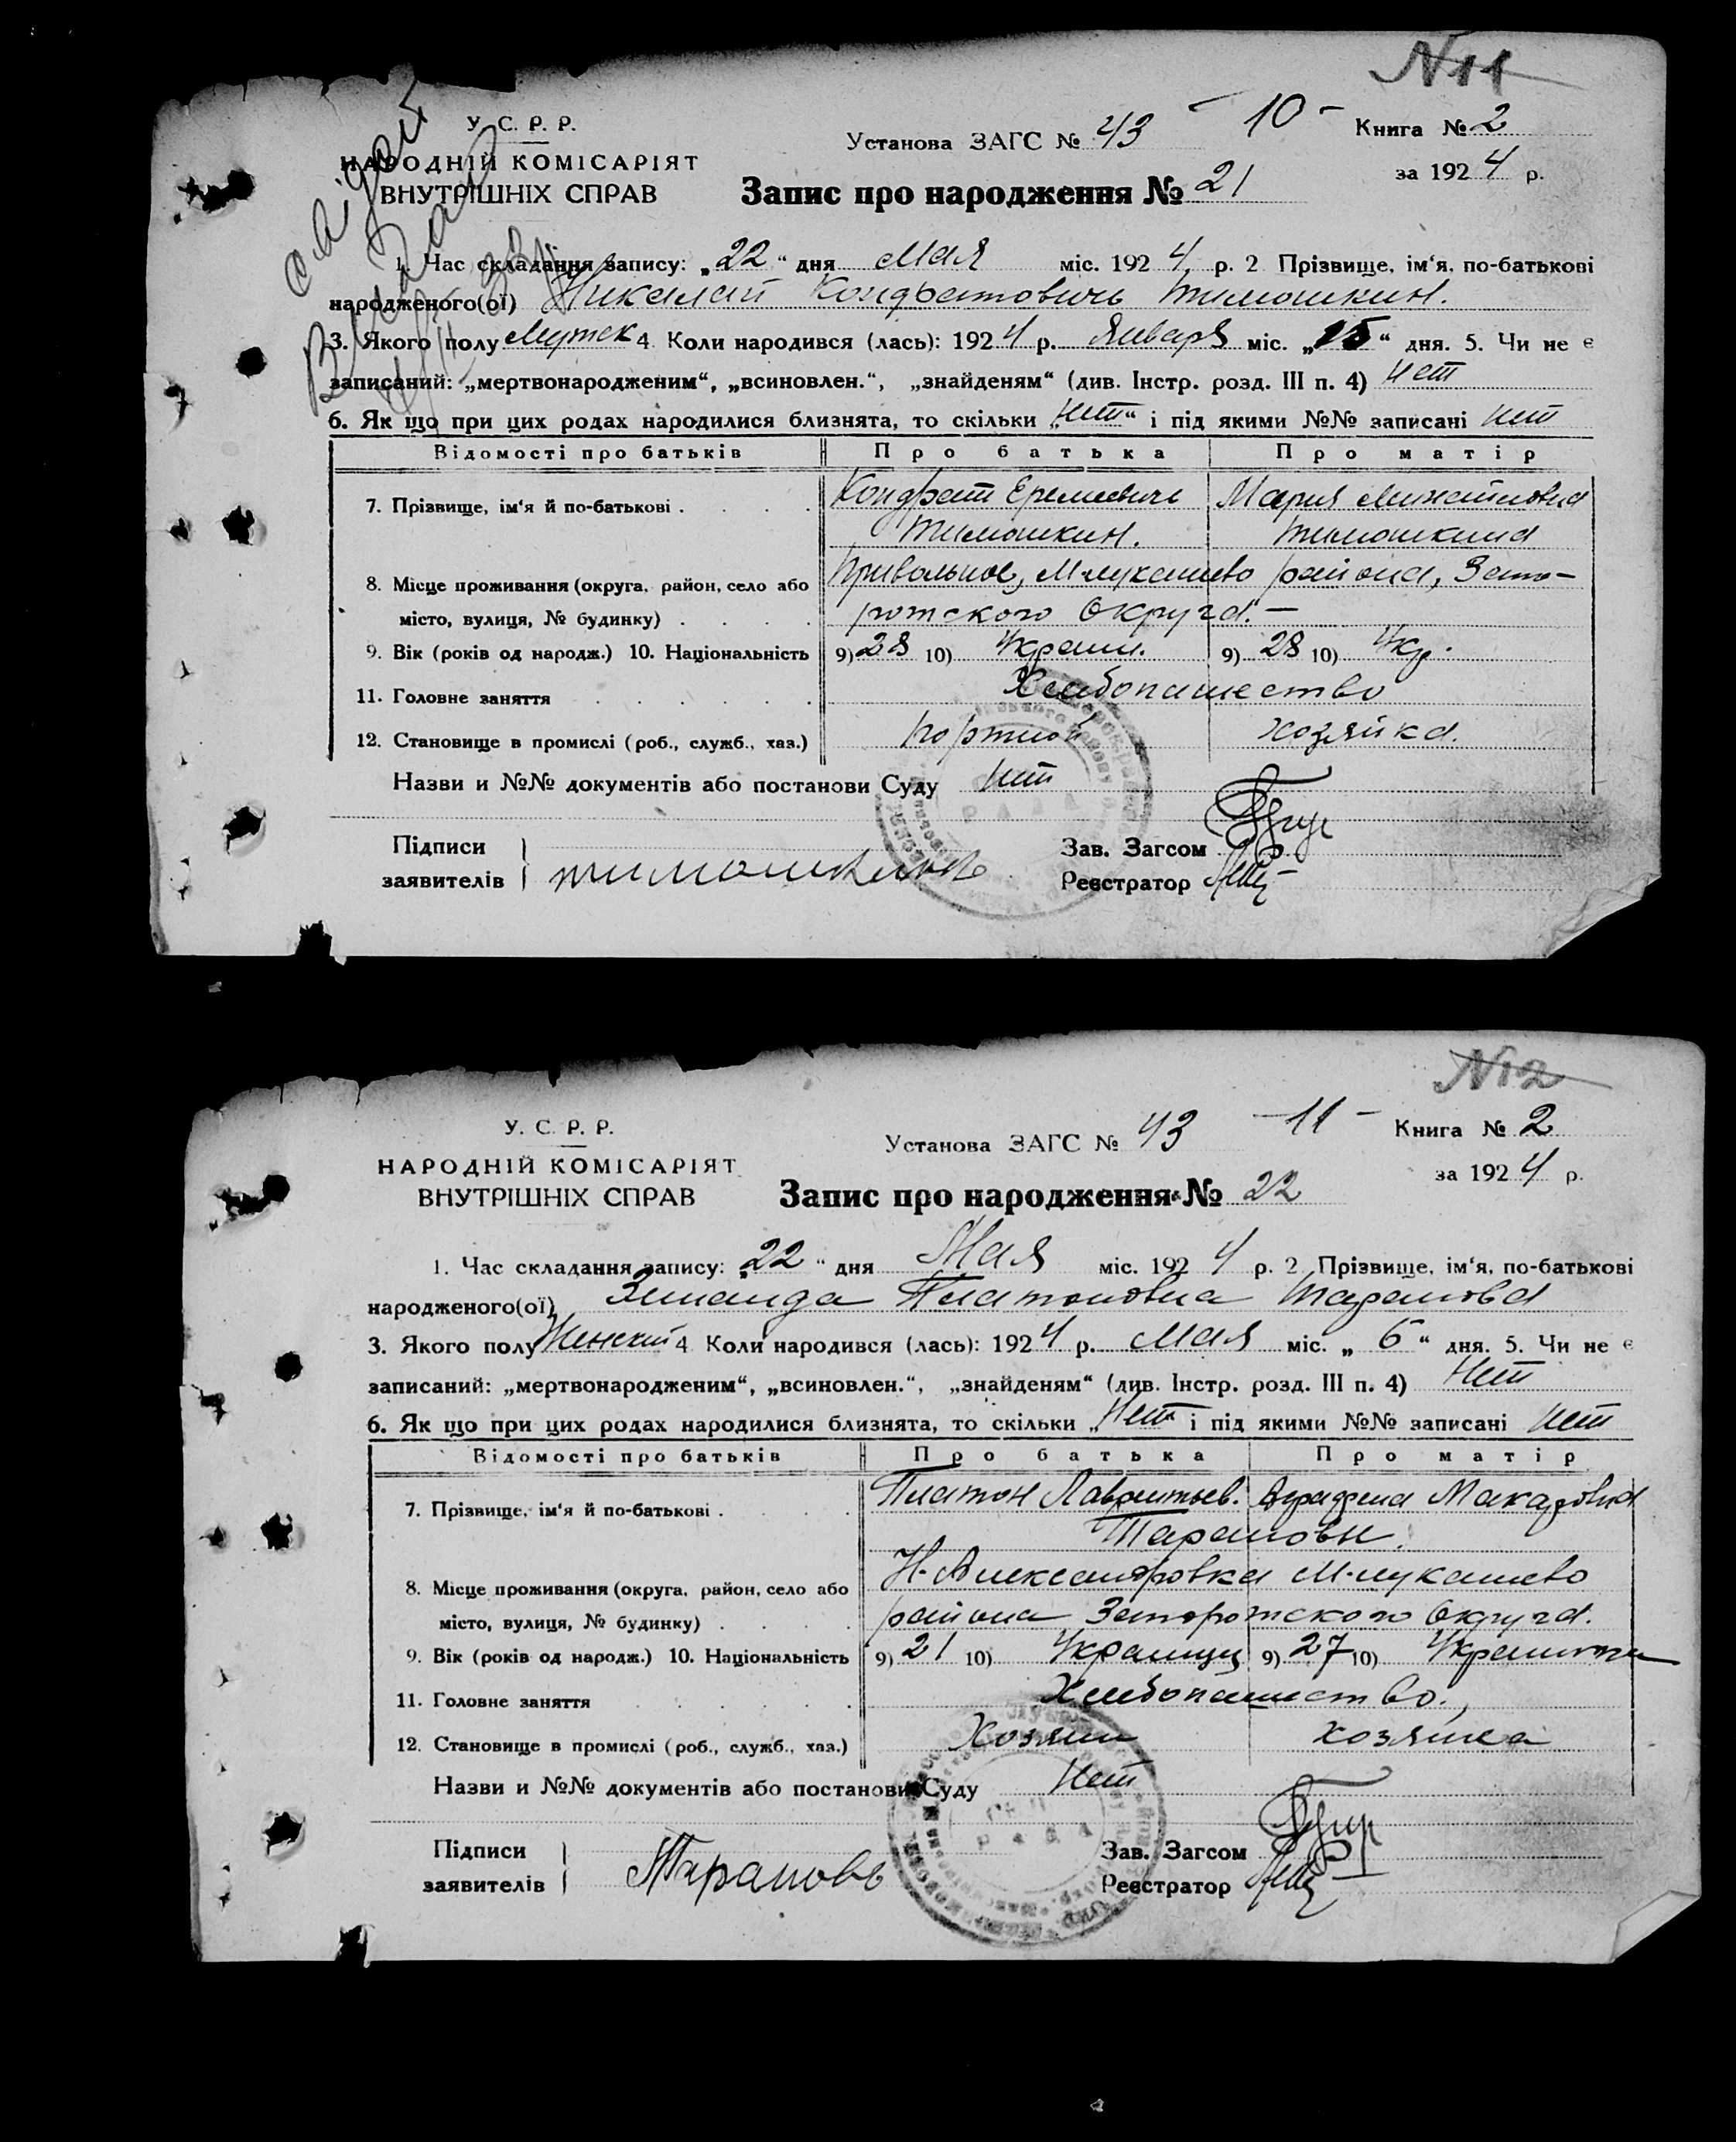 N11
У. С. Р. Р.
НАРОДНІЙ КОМІСАРІЯТ
ВНУТРІШНІХ СПРАВ
Установа ЗАГС № 43 - 10 - Книга № 2
за 1924 р.
Запис про народження № 21
1. Час складання запису: „22“ дня Мая міс. 1924 р. 2 Прізвище, ім‘я, по-батькові
народженого(ої) Николай Кондратовичь Тимошкин.
3. Якого полу Мужск 4 Коли народився (лась): 1924 р. Января міс. „15“ дня. 5. Чи не є
записаний: „мертвонародженим“, „всиновлен.“, „знайденям“ (див. Інстр. розд. III п. 4) Нет
6. Як що при цих родах народилися близнята, то скільки „Нет“ і під якими №№ записані Нет
Відомості про батьків Про батька Про матір
7. Прізвище, ім‘я й по-батькові . Кондрат Еремеевичь Мария
Тимошкин. Тимошкина
8. Місце проживання (округа, район, село або Привольное, М-Лукашево района, Запо-
місто, вулиця, № будинку) рожского Округа. —
9. Вік (років од народж.) 10. Національність 9) 28 10) Украин. 9) 28 10) Укр.
11. Головне заняття Хлебопашество
12. Становище в промислі (роб., служб., хаз.) портной хозяйка.
Назви и №№ документів або постанови Суду Нет
Підписи
заявителів Тимошкинъ
Зав. Загсом
Реєстратор
N12
У. С. Р. Р.
НАРОДНІЙ КОМІСАРІЯТ
ВНУТРІШНІХ СПРАВ
Установа ЗАГС № 43 - 11 - Книга № 2
за 1924 р.
Запис про народження № 22
1. Час складання запису: „22“ дня Мая міс. 1924 р. 2 Прізвище, ім‘я, по-батькові
народженого(ої) Зинаида Платоновна Таранова
3. Якого полу Женский 4 Коли народився (лась): 1924 р. Мая міс. „6“ дня. 5. Чи не є
записаний: „мертвонародженим“, „всиновлен.“, „знайденям“ (див. Інстр. розд. III п. 4) Нет
6. Як що при цих родах народилися близнята, то скільки „Нет“ і під якими №№ записані Нет
Відомості про батьків Про батька Про матір
7. Прізвище, ім‘я й по-батькові . Платон Лаврентьев. Макаровна
Тарановы.
8. Місце проживання (округа, район, село або Н-Александровка М-Лукашево
місто, вулиця, № будинку) района Запорожского Округа.
9. Вік (років од народж.) 10. Національність 9) 21 10) Украинец 9) 27 10) Украинка
11. Головне заняття Хлебопашество.
12. Становище в промислі (роб., служб., хаз.) Хозяин хозяйка
Назви и №№ документів або постанови Суду Нет
Підписи
заявителів Тарановъ
Зав. Загсом
Реєстратор